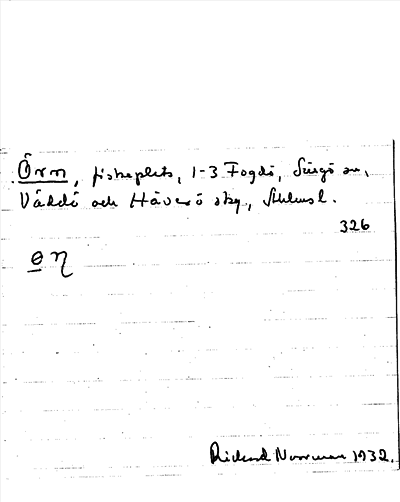 Örn, fiskeplats, 1-3 Fogdö, Singö sn,
Väddö och Häverö skg, Sthlmsl.
326
Richard Norrman 1932.